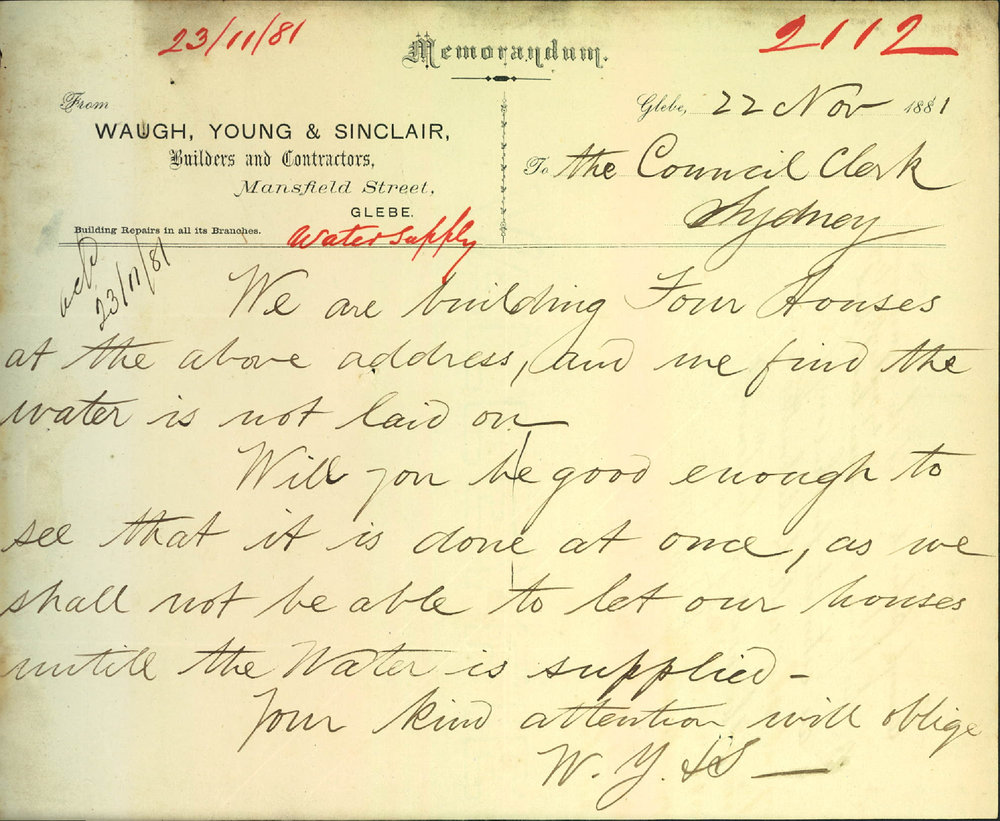 23/11/81
2112
Memorandum.
From
WAUGH, YOUNG & SINCLAIR,
Builders and Contractors,
Mansfield Street,
GLEBE.
Building Repairs in all its Branches.
Glebe, 22 Nov 1881
To the Council Clerk
Sydney
Water Supply
23/11/81
We are building Four Houses
at the above address, and we find the
water is not laid on
Will you be good enough to
see that it is done at once, as we
shall not be able to let our houses
untill the Water is supplied -
Your kind attention will oblige
W. Y. & S —